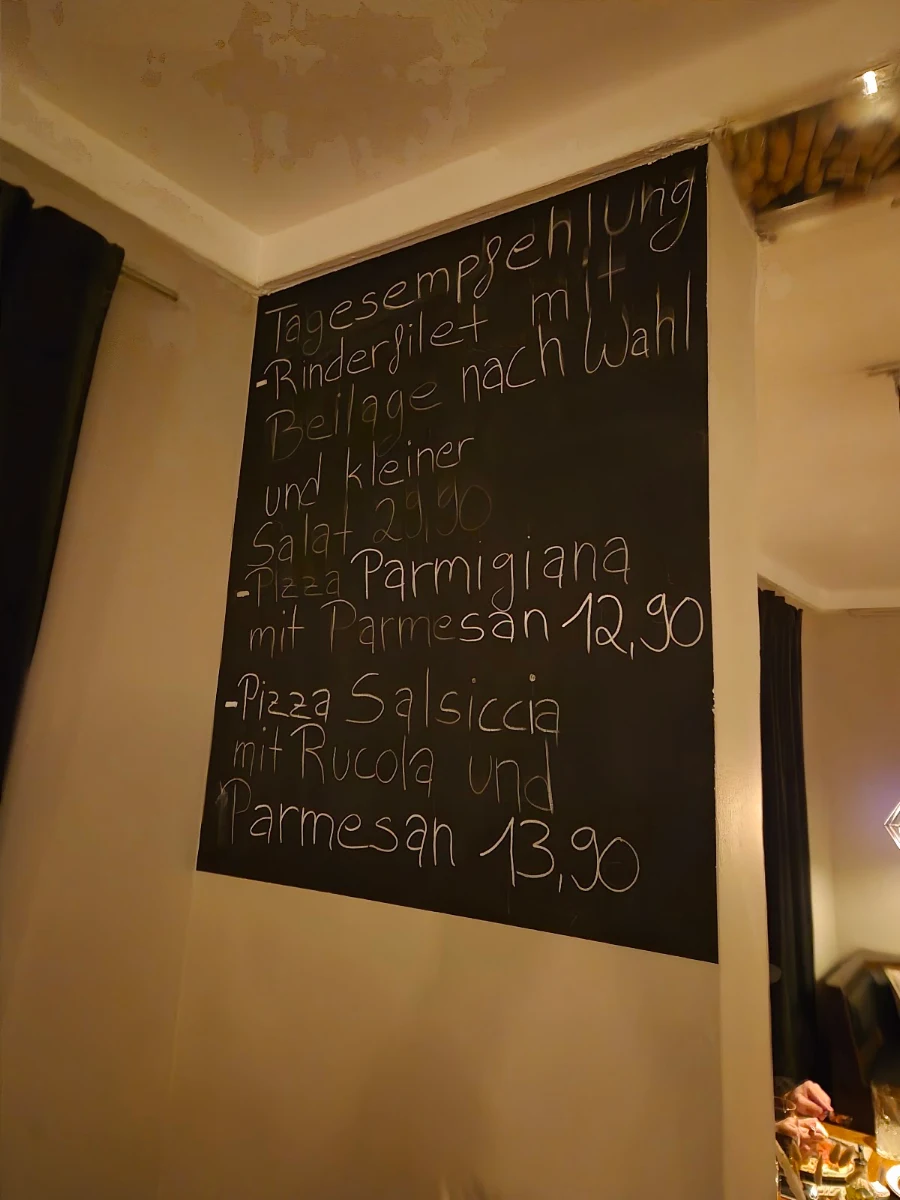 Tagesempfehlung
-Rinderfilet mit
Beilage nach Wahl
und kleiner
Salat 29,90
-Pizza Parmigiana
mit Parmesan 12,90
-Pizza Salsiccia
mit Rucola und
Parmesan 13,90